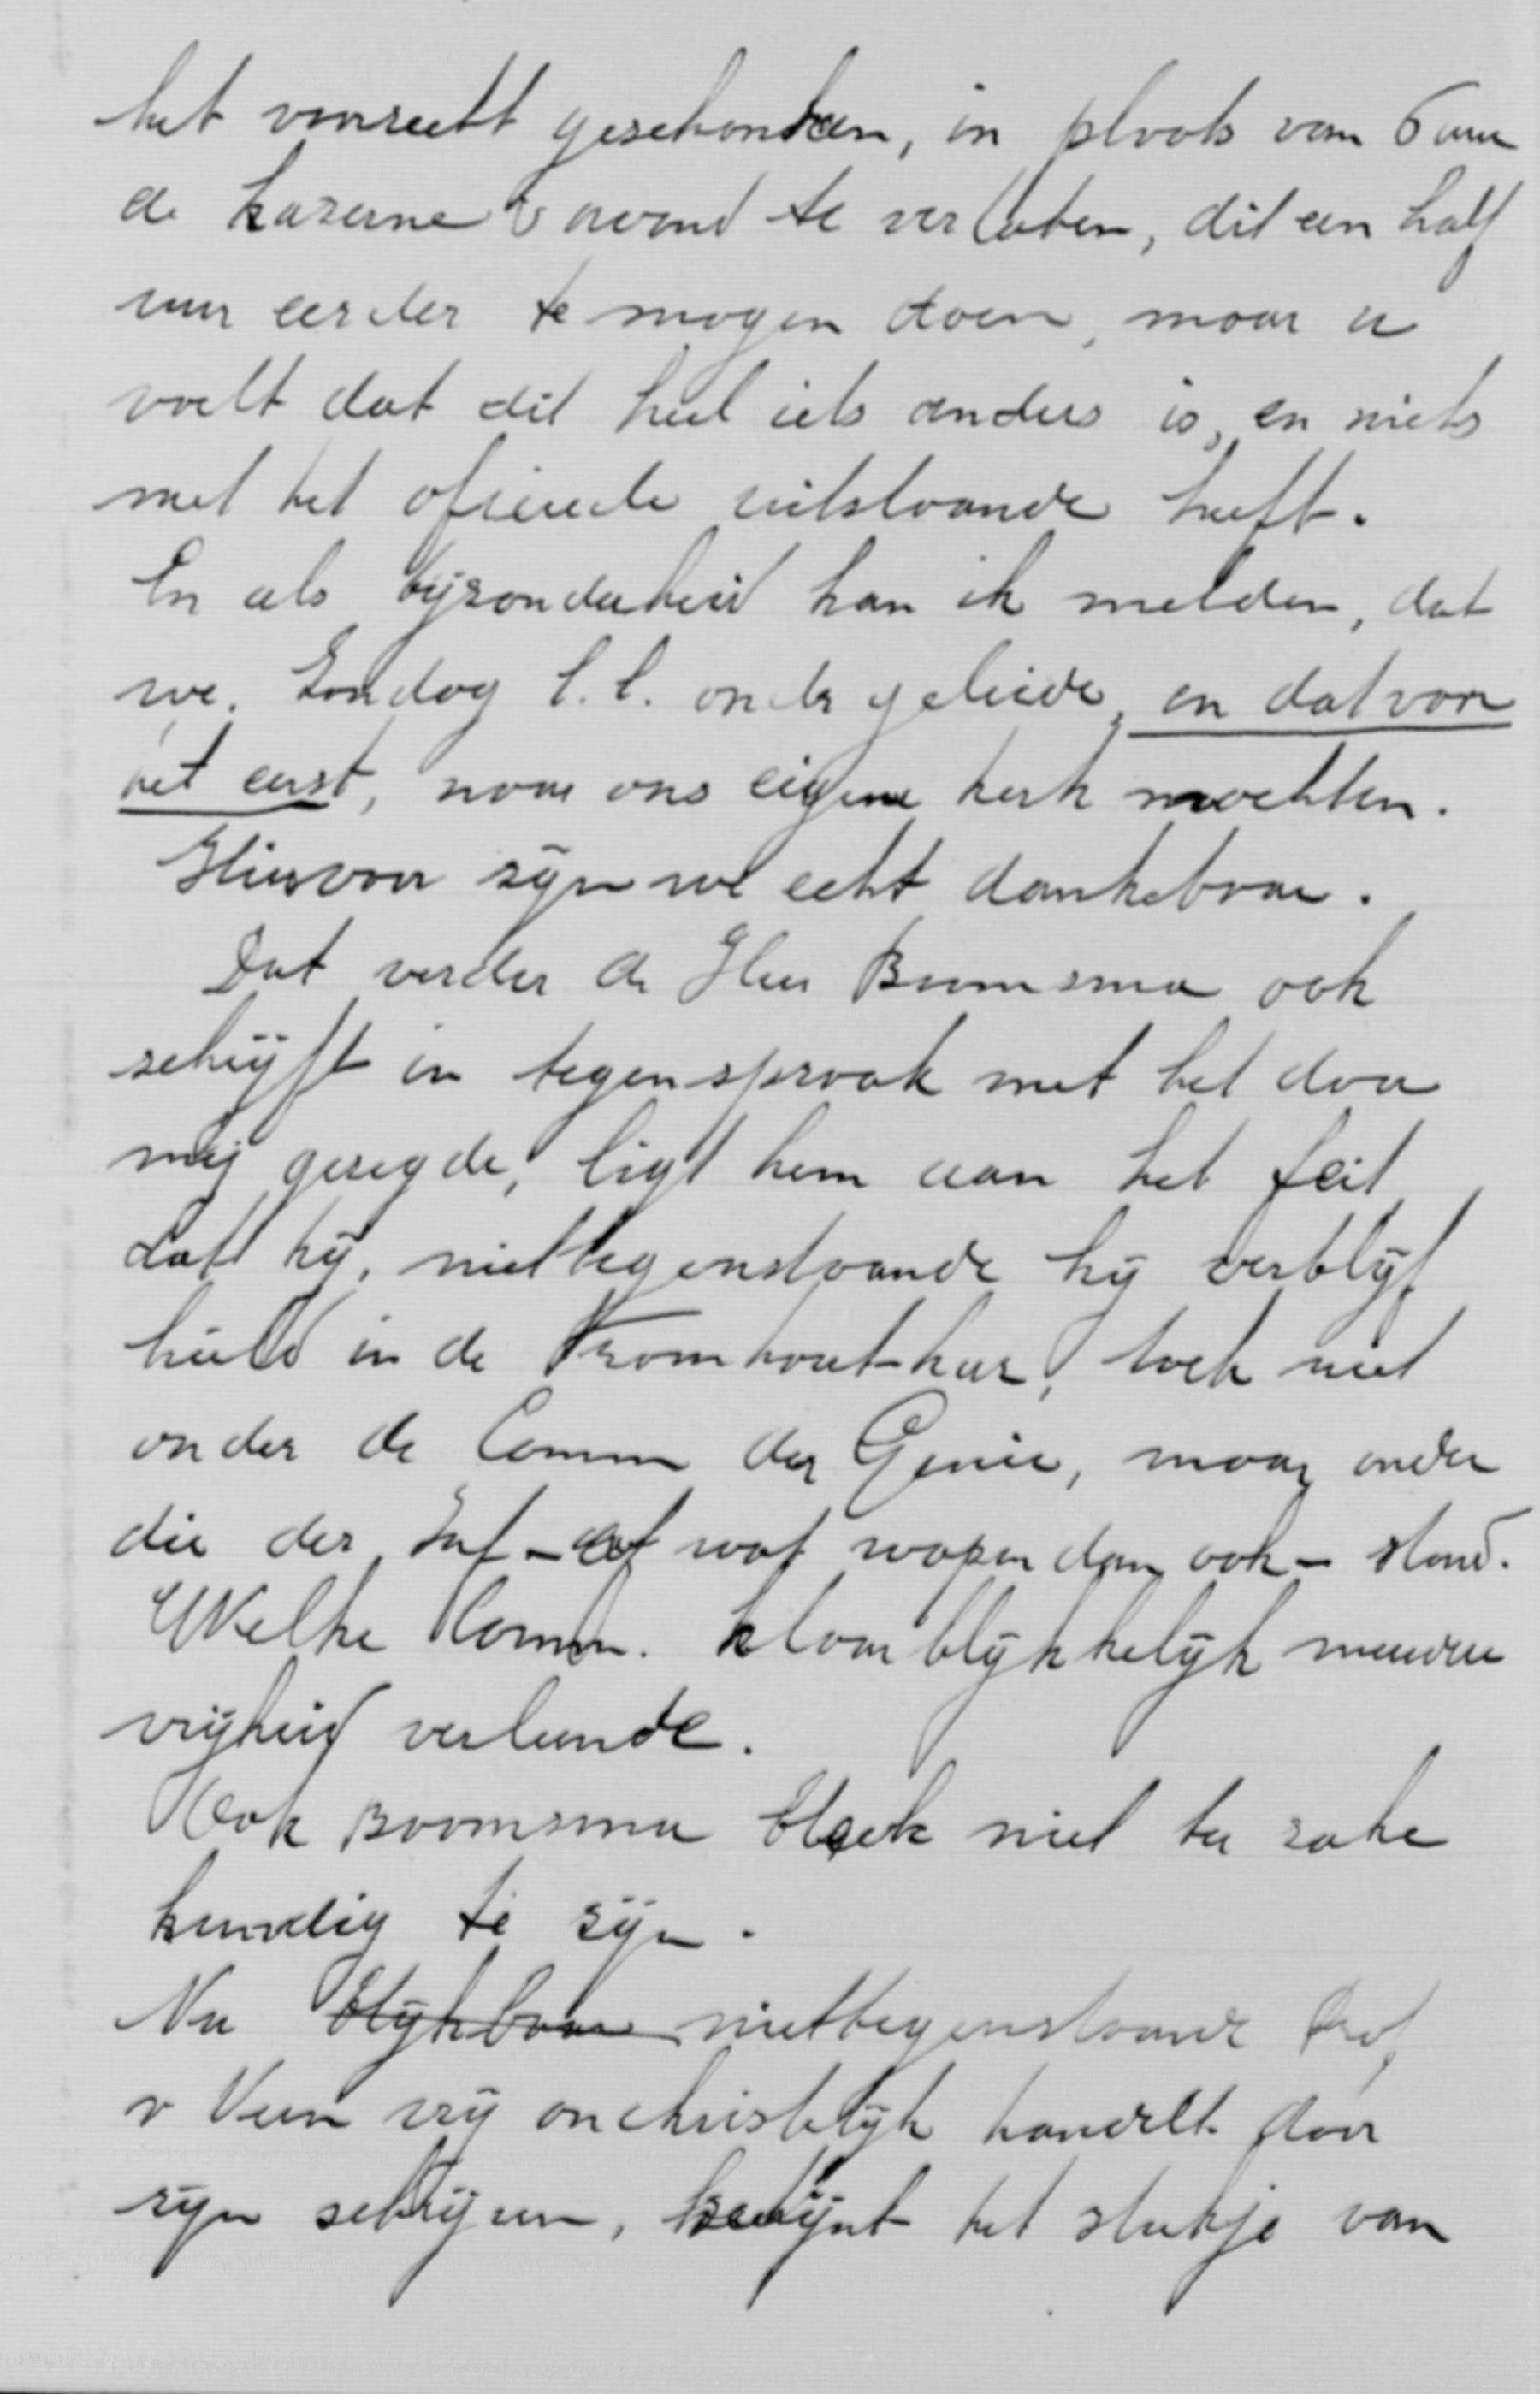 het voorrecht geschonken, in plaats van 6 uur
de kazerne 's avond te verlaten, dit een half
uur eerder te mogen doen, maar u
voelt dat dit heel iets anders is, en niets
met het oficieele uitstaande heeft.
En als byzonderheid kan ik melden, dat
we Zondag l.l. onder geleide, en dat voor
het eerst, naar ons eigene kerk mochten.
Hiervoor zyn we echt dankebaar.
Dat verder de Heer Boomsma ook
schryft in tegenspraak met het door
mij gezegde, ligt hem aan het feit
dat hy, niettegenstaande hy verblyf
hield in de Kromhout-kaz, toch niet
onder de Comm der Genie, maar onder
die der Inf - of wat wapen dan ook - stond.
Welke Comm. klaarblykkelyk meerdere
vryheid verleende.
Ook Boomsma bleek niet ter zake
kundig te zyn.
Nu blykbaar niettegenstaande Prof
v Veen vry onchristelyk handelt door
zyn schryven, het stukje van